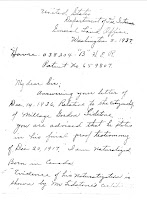 United States
Department of the Interior
General Land Office
Washington
Havre 038304 "B" H.E.A
Patent No. 659869.
My dear Sir,
Answering your letter of
Dec. 14, 1936, Relative to the
of William Gordon Sidetone
you are advised that he states
in his final proof testimony
of Dec. 27, 1917, I am Naturalized
Born in Canada
Evidence of his Naturalization is
shown by